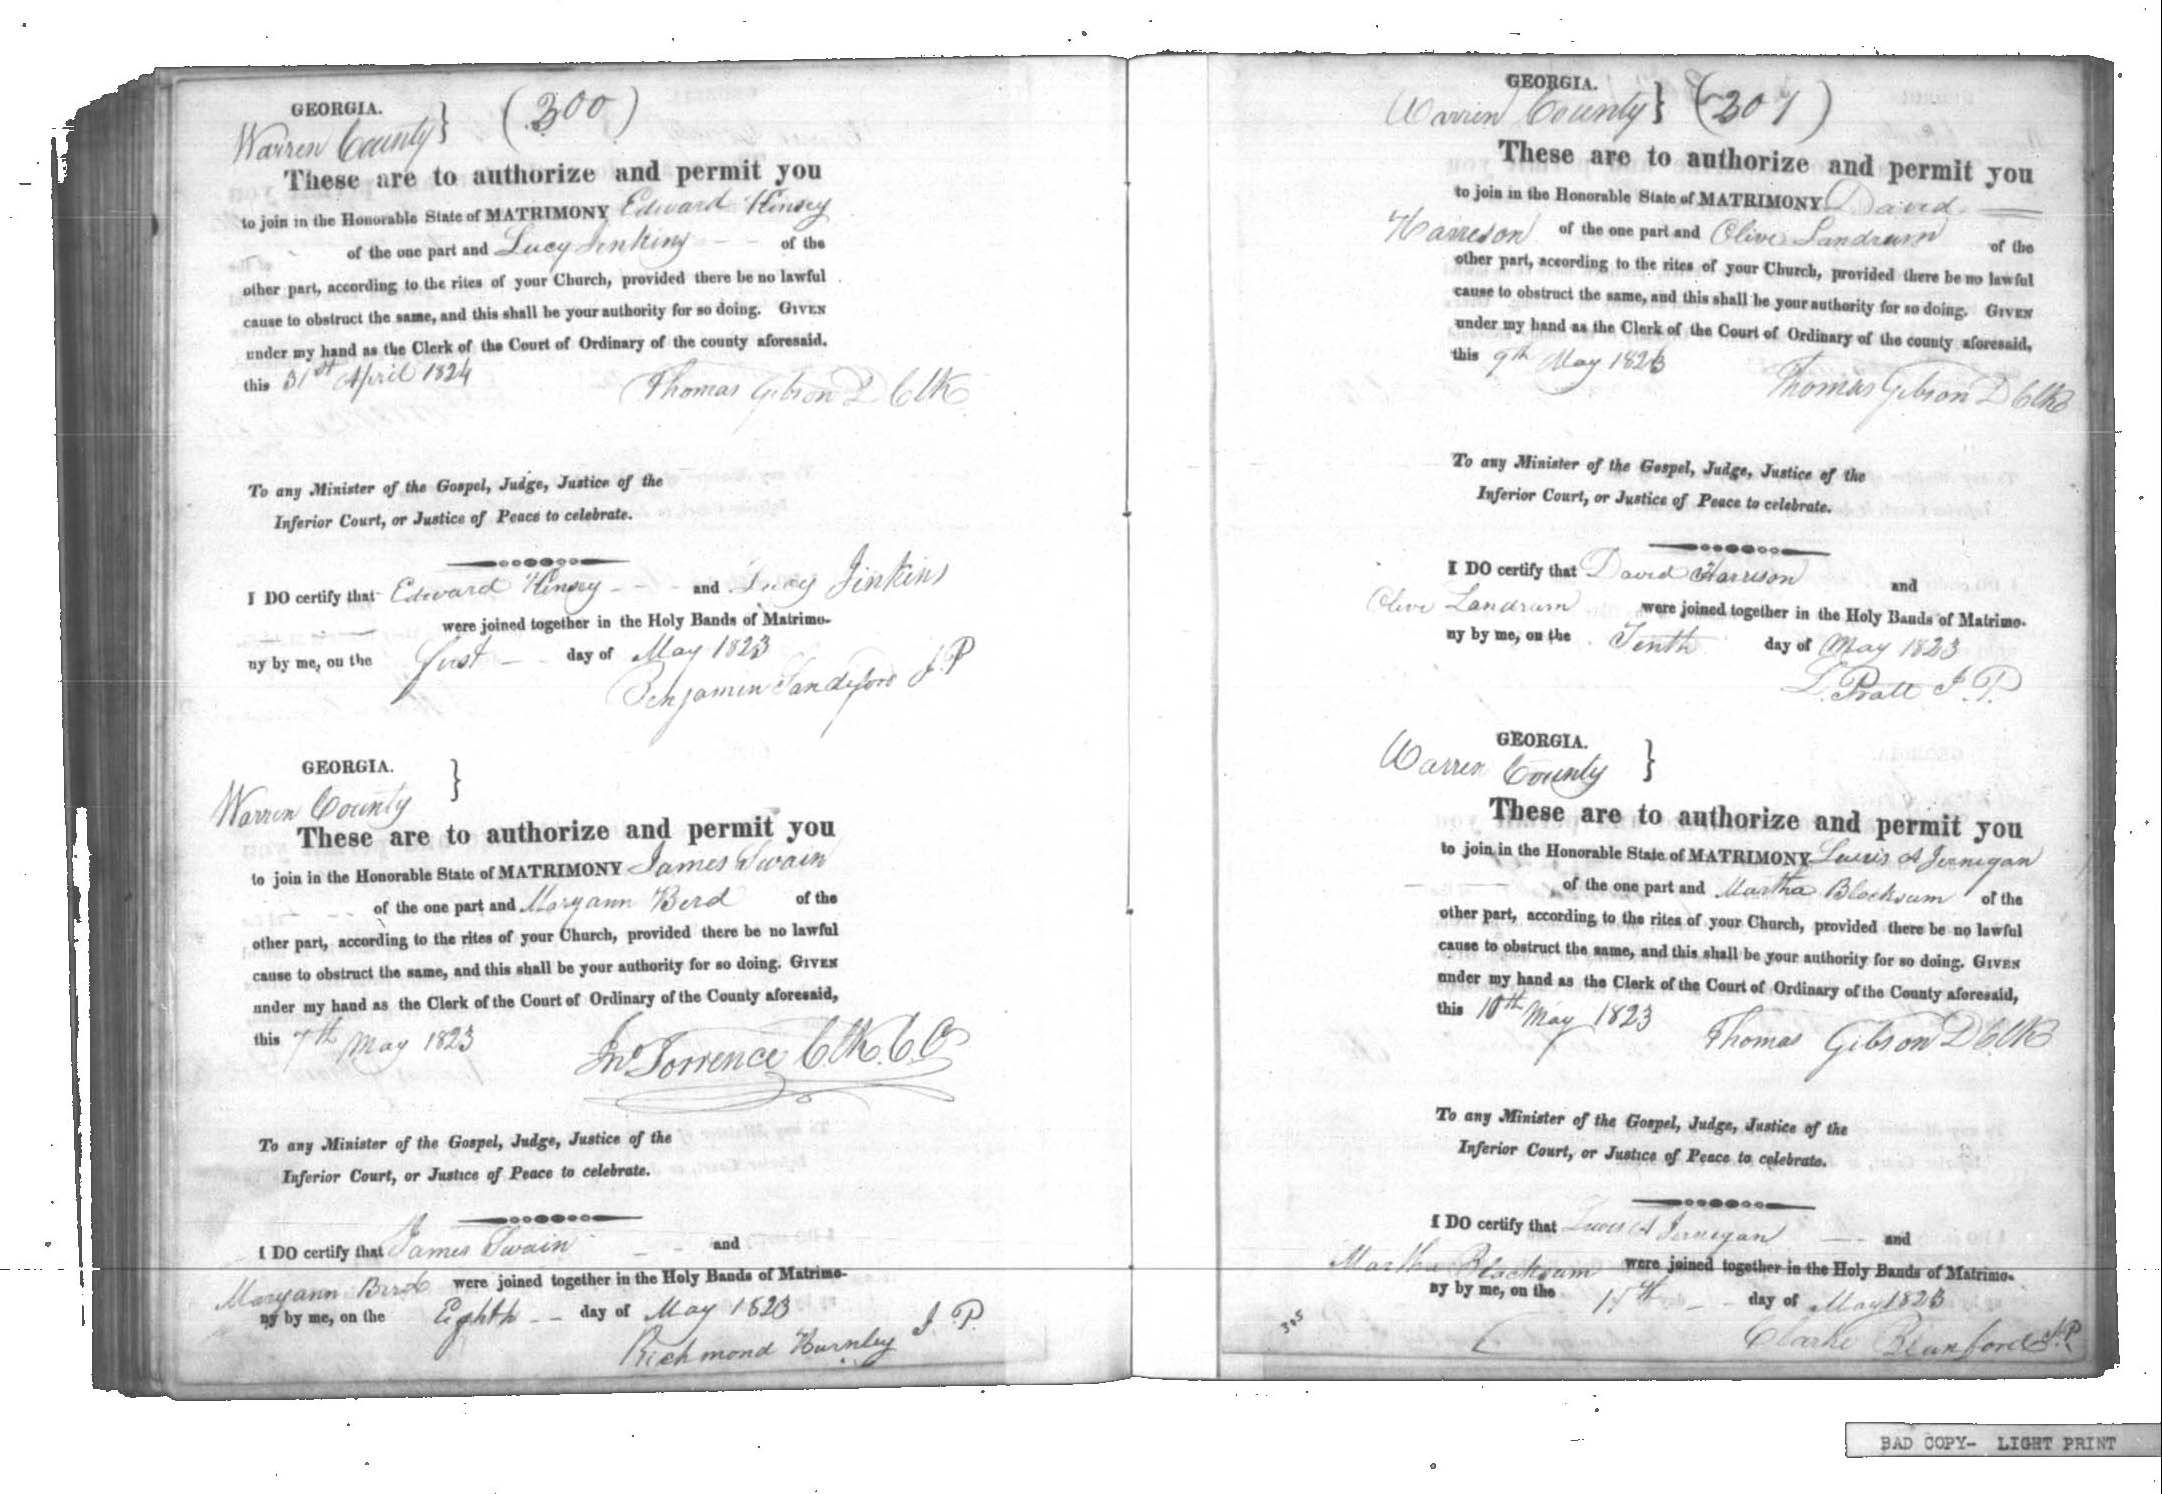 GEORGIA.
Warren County } (300)
These are to authorize and permit you
to join in the Honorable State of MATRIMONY Edward Kinsey
of the one part and Lucy Jinkins - - of the
other part, according to the rites of your Church, provided there be no lawful
cause to obstruct the same, and this shall be your authority for so doing. GIVEN
under my hand as the Clerk of the Court of Ordinary of the county aforesaid,
this 31st April 1824
Thomas Gibson D Clk
To any Minister of the Gospel, Judge, Justice of the
Inferior Court, or Justice of Peace to celebrate.
I DO certify that Edward Kinsey - - - and Lucy Jinkins
were joined together in the Holy Bands of Matrimo-
ny by me, on the first - - day of May 1823
Benjamin Sandeford J.P
GEORGIA. }
Warren County
These are to authorize and permit you
to join in the Honorable State of MATRIMONY James Swain
of the one part and Maryann Berd of the
other part, according to the rites of your Church, provided there be no lawful
cause to obstruct the same, and this shall be your authority for so doing. GIVEN
under my hand as the Clerk of the Court of Ordinary of the County aforesaid,
this 7th May 1823
Jno Torrence Clk. C.O
To any Minister of the Gospel, Judge, Justice of the
Inferior Court, or Justice of Peace to celebrate.
I DO certify that James Swain - - and
Maryann Berd were joined together in the Holy Bands of Matrimo-
ny by me, on the Eighth - - day of May 1823
Richmond Burnley J P.
GEORGIA.
Warren County } (207)
These are to authorize and permit you
to join in the Honorable State of MATRIMONY David
Harreson of the one part and Olive Landrum of the
other part, according to the rites of your Church, provided there be no lawful
cause to obstruct the same, and this shall be your authority for so doing. GIVEN
under my hand as the Clerk of the Court of Ordinary of the county aforesaid,
this 9th May 1823
Thomas Gibson D Clk
To any Minister of the Gospel, Judge, Justice of the
Inferior Court, or Justice of Peace to celebrate.
I DO certify that David Harrison and
Olive Landrum were joined together in the Holy Bands of Matrimo-
ny by me, on the Tenth day of May 1823
L. Pratt J.P.
GEORGIA.
Warren County }
These are to authorize and permit you
to join in the Honorable State of MATRIMONY Lewis A Jernigan
of the one part and Martha Blocksum of the
other part, according to the rites of your Church, provided there be no lawful
cause to obstruct the same, and this shall be your authority for so doing. GIVEN
under my hand as the Clerk of the Court of Ordinary of the County aforesaid,
this 10th May 1823
Thomas Gibson D Clk
To any Minister of the Gospel, Judge, Justice of the
Inferior Court, or Justice of Peace to celebrate.
I DO certify that Lewis A Jernigan - and
Martha Blocksum were joined together in the Holy Bands of Matrimo-
ny by me, on the 15th - - day of May 1823
305
Clarke Blanford J.P.
BAD COPY- LIGHT PRINT